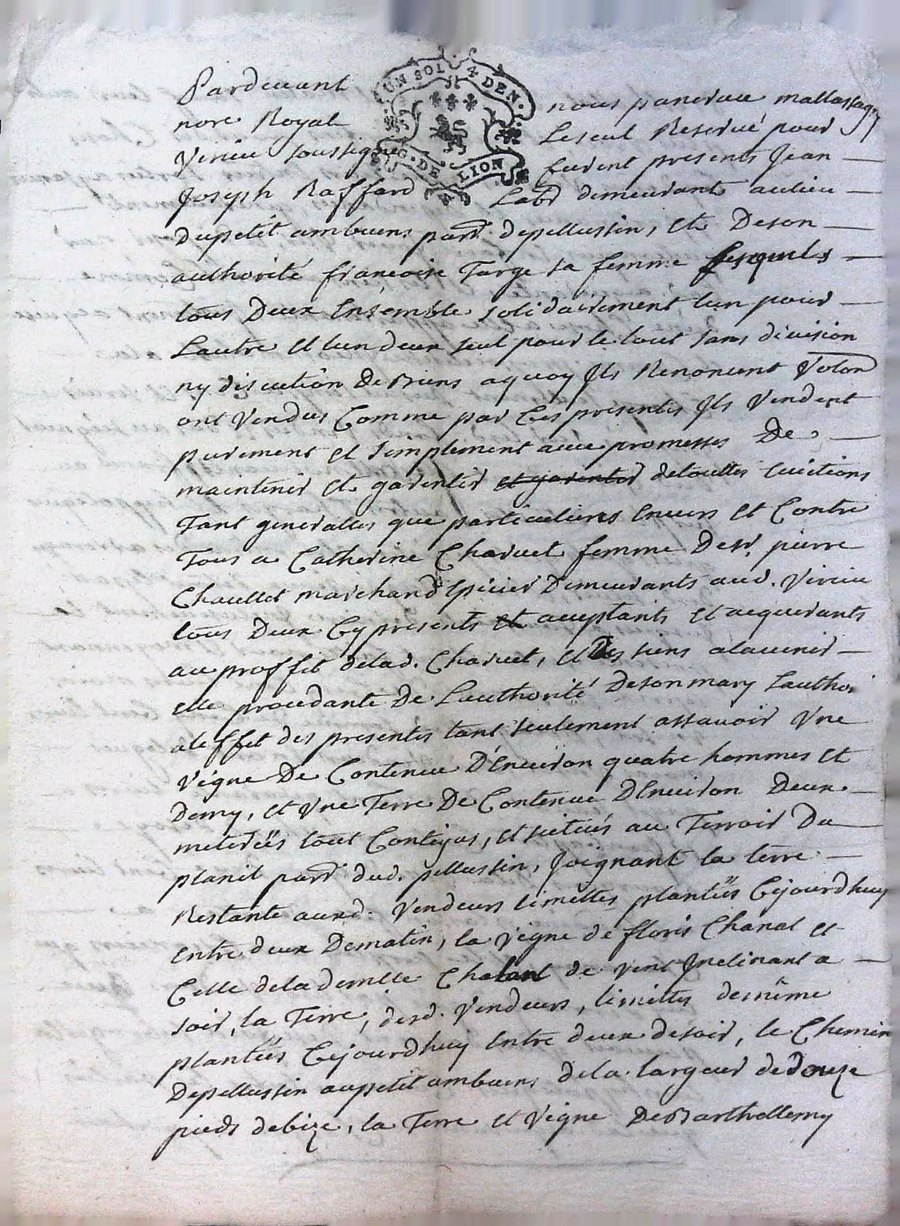 UN SOL 4 DEN.
G. DE LION
Pardevant nous pancrace mallassagny
nore Royal Le seul Reservé pour
Virieu soussigné furent presents Jean
Joseph Raffard Labr demeurant au lieu
du petit ambuens parr. de pellussin, et De son
authorité francoise Targe sa femme lesquels
tous Deux Ensemble solidairement lun pour
Lautre et lun deux seul pour le tout sans division
ny discution De Biens a quoy Ils Renoncent Volon
ont Vendus Comme par Ces presentes Ils Vendent
purement et simplement avec promesses De
maintenir et garentir et garentir de touttes evictions
Tant generalles que particulieres Envers et Contre
Tous a Catherine Charvet femme De sr. pierre
Chaullet marchand Epicier Demeurants aud. Virieu
tous Deux Cy presents et acceptants et acquerants
au proffit de lad. Charvet, et Des siens a lavenir
elle procedante De Lauthorité De son mary Lauthor
a leffet des presentes tant seulement assavoir Vne
Vigne De Contenue D'Environ quatre hommes et
Demy, et Vne Terre De Contenue D'Environ Deux
meterées tout Contigus, et scitués au Terroir Du
planil parr. dud. pellussin, Joignant la terre
Restante auxd. Vendeurs limittes plantées Cejourdhuy
Entre deux De matin, la Vigne de floris Chanal et
Celle de la demlle de vent Inclinant a
soir, la Terre, desd. Vendeurs, limittes de même
plantées Cejourdhuy Entre deux de soir, le Chemin
De pellussin au petit ambuens de la largeur de douze
pieds de bize, la Terre et Vigne De Barthellemy